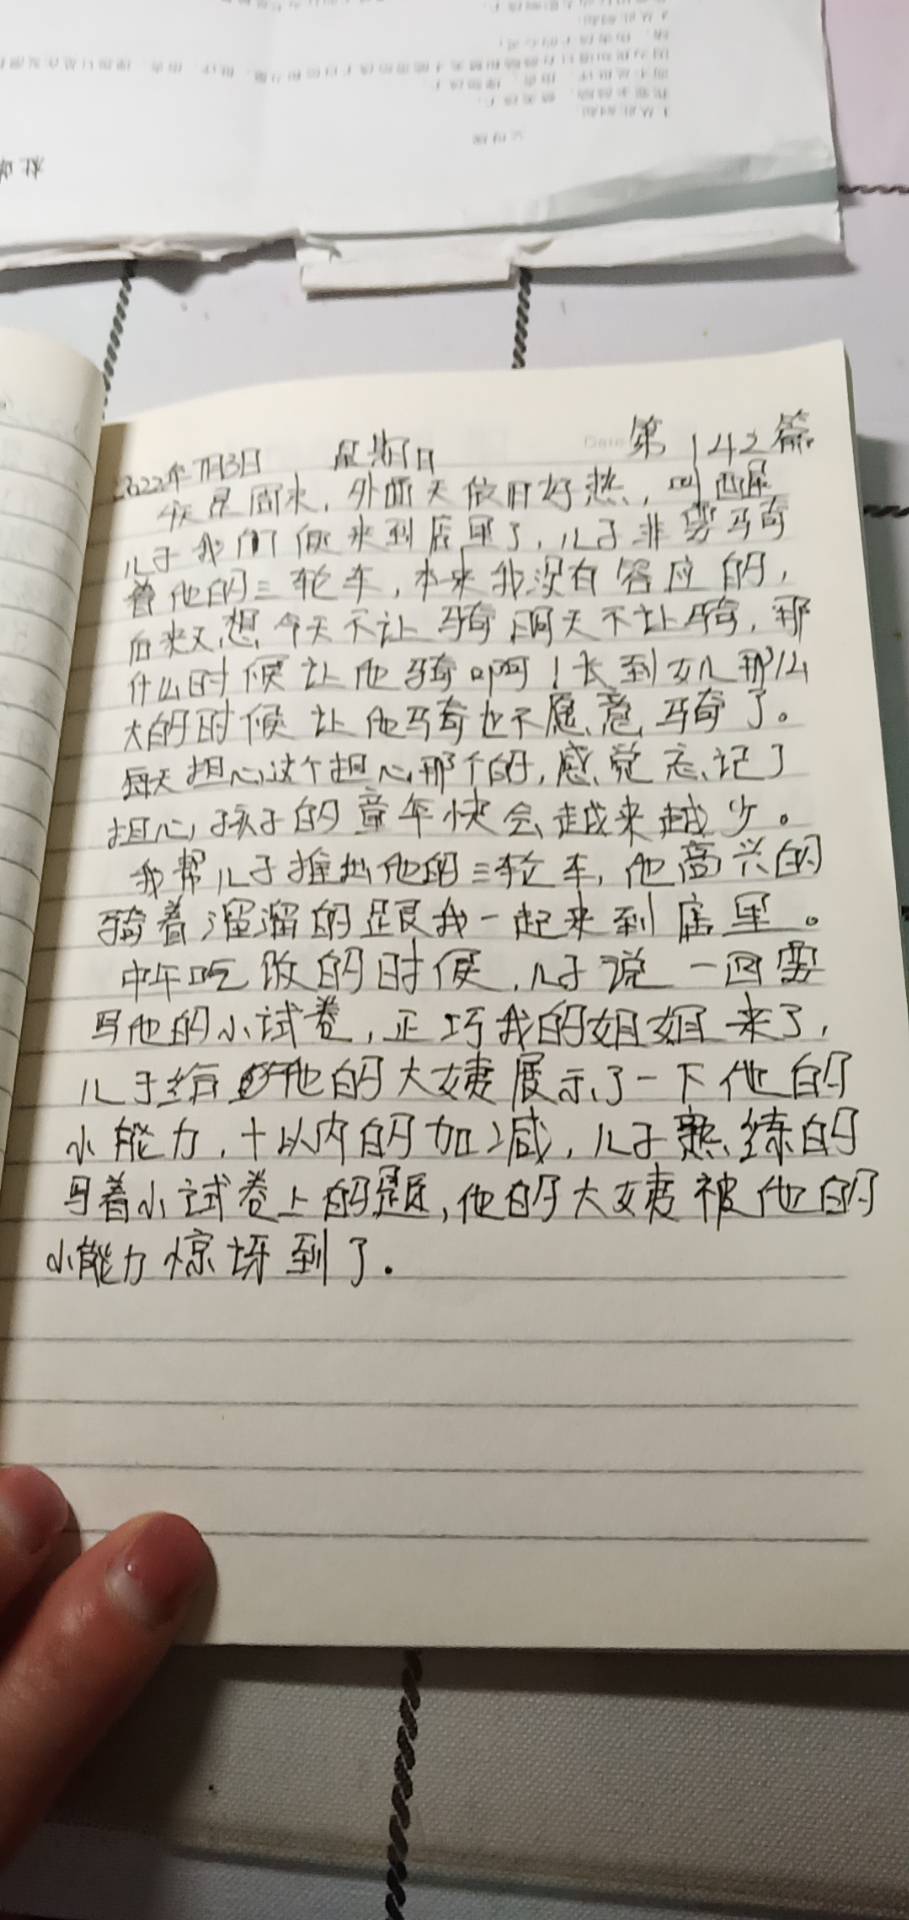 2022年7月3日 星期日 第142篇
今天是周末，外面天依旧好热，叫醒
儿子我们便来到店里了，儿子非要骑
着他的三轮车，本来我没有答应的，
后来又想今天不让骑，明天不让骑，那
什么时候让他骑啊！长到女儿那么
大的时候让他骑也不愿意骑了。
每天担心这个担心那个的，感觉忘记了
担心孩子的童年快会越来越少。
我帮儿子推出他的三轮车，他高兴的
骑着溜溜的跟我一起来到店里。
中午吃饭的时候，儿子说一回要
写他的小试卷，正巧我的姐姐来了，
儿子给他的大姨展示了一下他的
小能力，十以内的加减，儿子熟练的
写着小试卷上的题，他的大姨被他的
小能力惊讶到了.